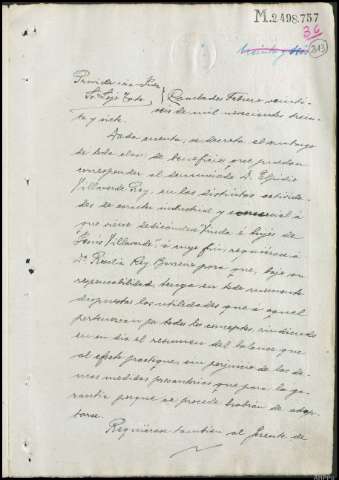 M.2498.757
36
213
Providencia Juez
Sr.
Febrero veinti-
seis de mil novecientos trein-
ta y siete.
Dada cuenta, se decreta el embargo
de toda clase de beneficios que puedan
corresponder al denunciado D. Elpidio
Villaverde Rey, en las distintas activida-
des de carácter industrial y comercial a
que viene dedicándose Viuda e hijos de
"Jesús Villaverde", a cuyo fin, requiérase a
Dª Rosalía Rey Barreiro para que, bajo su
responsabilidad, tenga en todo momento
dispuestas las utilidades que a aquel
pertenezcan por todos los conceptos, rindiendo
en su día el resumen del balance que
al efecto practique, sin perjuicio de las de-
más medidas precautorias que para la ga-
rantía porque se procede habrán de adop-
tarse.
Requiérase también al Gerente de